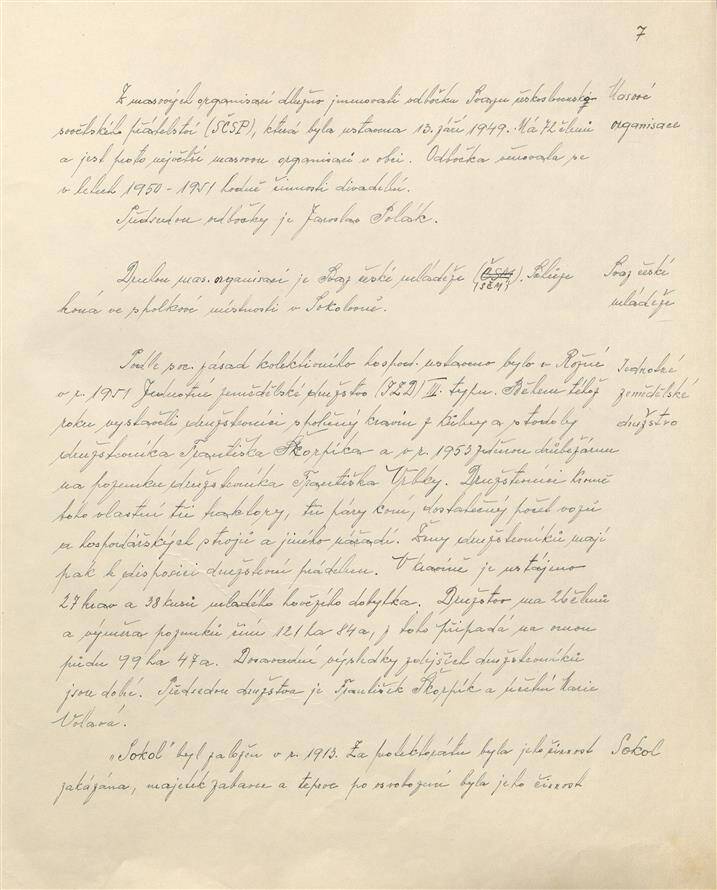 7
Z masových organisací dlužno jmenovati odbočku Svazu československo- Masové
sovětského přátelství (SČSP), která byla ustavena 13. září 1949. Má 72 členů organisace
a jest proto největší masovou organisací v obci. Odbočka věnovala se
v letech 1950 - 1951 hodně činnosti divadelní.
Předsedou odbočky je Jaroslav Polák.
Druhou mas. organisací je Svaz české mládeže (ČSM). Schůze Svaz české
(SČM)
koná ve spolkové místnosti v Sokolovně. mládeže
Podle soc. zásad kolektivního hospod. ustaveno bylo v Rožné Jednotné
v r. 1951 Jednotné zemědělské družstvo (JZD) III. typu. Během téhož zemědělské
roku vystavěli družstevníci společný kravín z kůlny a stodoly družstvo
družstevníka Františka Škorpíka a v r. 1953 zděnou drůbežárnu
na pozemku družstevníka Františka Vrbky. Družstevníci kromě
toho vlastní tři traktory, tři páry koní, dostatečný počet vozů
a hospodářských strojů a jiného nářadí. Ženy družstevníků mají
pak k disposici družstevní prádelnu. V kravíně je ustájeno
27 krav a 38 kusů mladého hovězího dobytka. Družstvo má 26 členů
a výměra pozemků činí 121 ha 84 a, z toho připadá na ornou
půdu 99 ha 47 a. Dosavadní výsledky zdejších družstevníků
jsou dobé. Předsedou družstva je František Škorpík a účetní Marie
Volavá.
„Sokol" byl založen v r. 1913. Za protektorátu byla jeho činnost Sokol
zakázána, majetek zabaven a teprve po osvobození byla jeho činnost